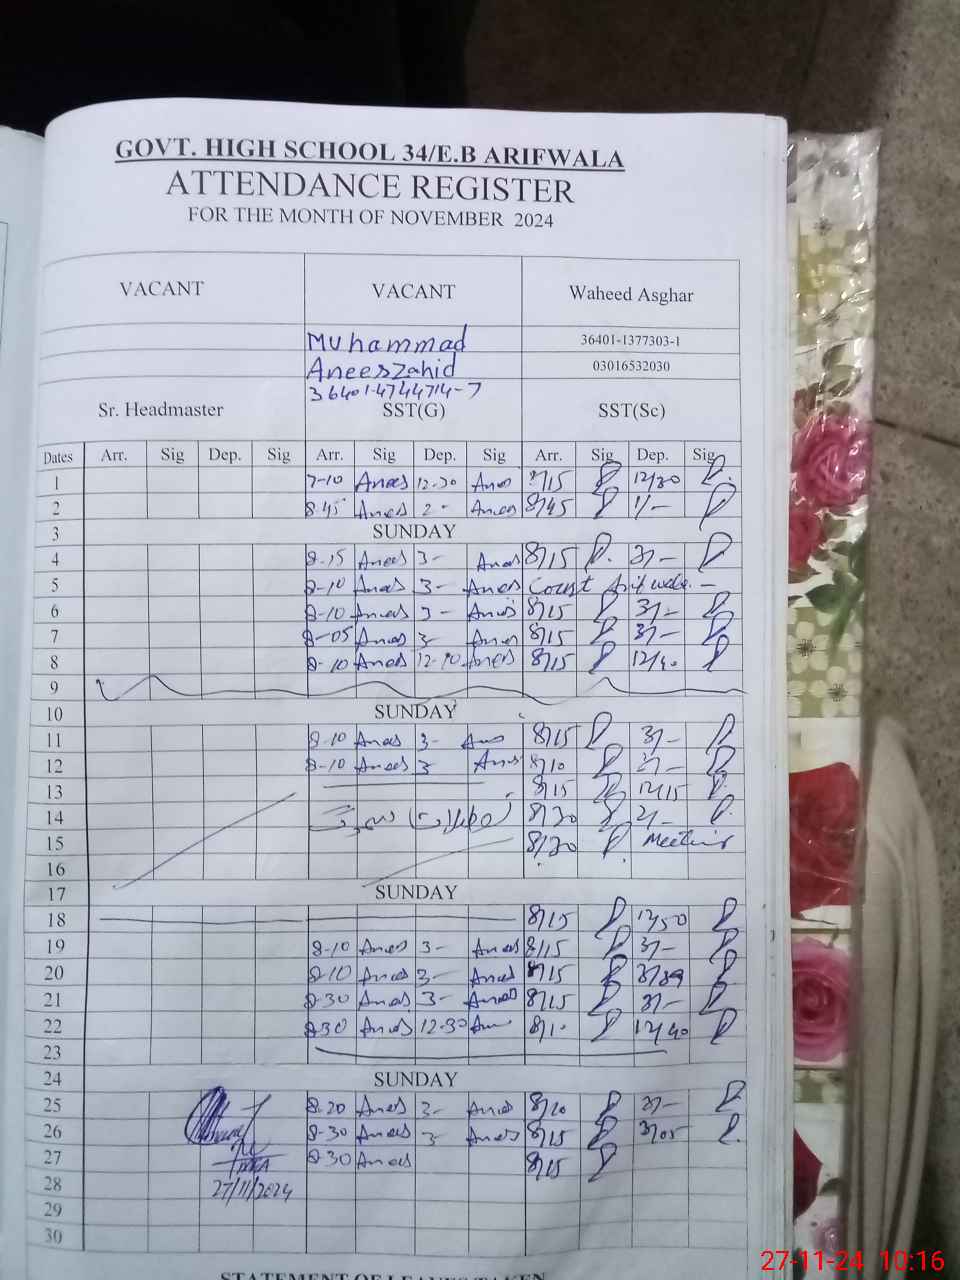 GOVT. HIGH SCHOOL 34/E.B ARIFWALA
ATTENDANCE REGISTER
FOR THE MONTH OF NOVEMBER 2024
VACANT VACANT Waheed Asghar
Muhammad 36401-1377303-1
Aneeszahid 03016532030
36401-4744714-7
Sr. Headmaster SST(G) SST(Sc)
Dates Arr. Sig Dep. Sig Arr. Sig Dep. Sig Arr. Sig Dep. Sig
1 Anees 12-30 Anees 8/15 12/30
2 8-45 Anees 2- Anees 8/45 1/-
3 SUNDAY
4 8-15 Anees 3- Anees 8/15 3/-
5 8-10 Anees 3- Anees Court
6 8-10 Anees 3- Anees 8/15 3/-
7 8-05 Anees 3- Anees 8/15 3/-
8 8-10 Anees Anees 8/15 12/40
9
10 SUNDAY
11 8-10 Anees 3- Anees 8/15 3/-
12 8-10 Anees 3 Anees 8/10
13 8/15 12/15
14 8/20 2/-
15 8/30 Meeting
16
17 SUNDAY
18 8/15 12/50
19 8-10 Anees 3- Anees 8/15 3/-
20 8-10 Anees 3- Anees 8/15
21 8-30 Anees 3- Anees 8/15 3/-
22 8-30 Anees 12-30 8/10 12/40
23
24 SUNDAY
25 8-20 Anees 3- Anees 8/20 3/-
26 8-30 Anees 3- Anees 8/15 3/05
27 8-30 Anees 8/15
28 27/11/2024
29
30
STATEMENT OF LEAVES TAKEN
27-11-24 10:16